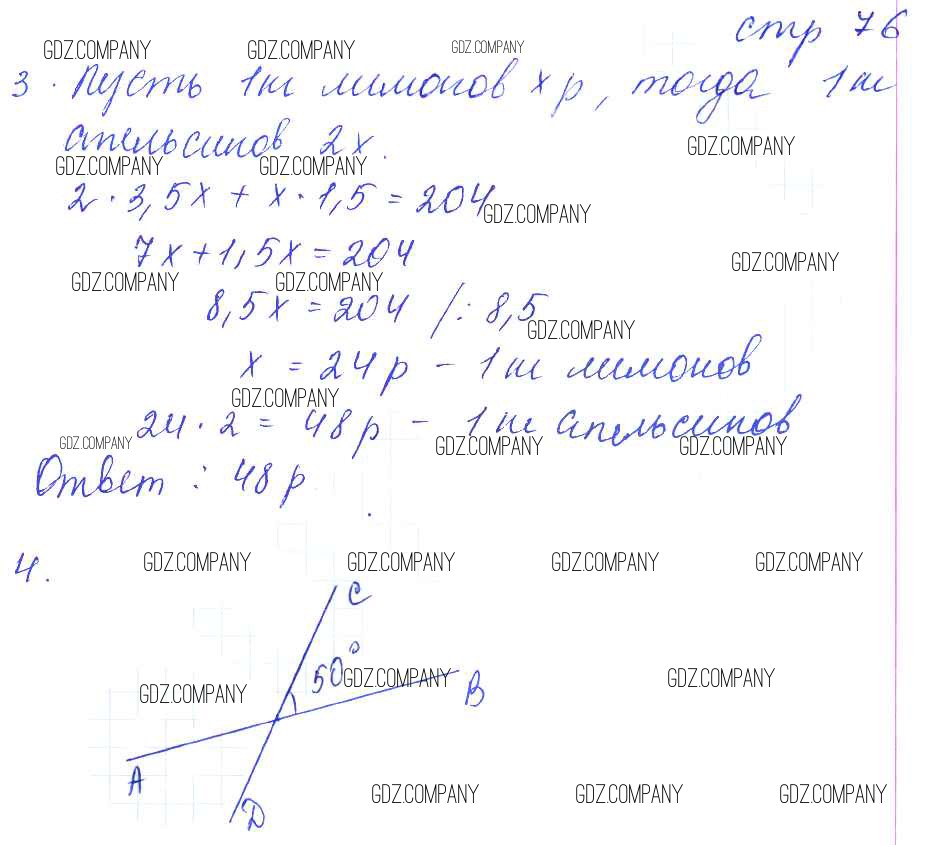 стр 76
GDZ.COMPANY GDZ.COMPANY GDZ.COMPANY
3. Пусть 1 кг лимонов x р, тогда 1 кг
апельсинов 2x.
GDZ.COMPANY
GDZ.COMPANY GDZ.COMPANY
2 · 3,5x + x · 1,5 = 204
GDZ.COMPANY
7x + 1,5x = 204
GDZ.COMPANY
GDZ.COMPANY GDZ.COMPANY
8,5x = 204 /: 8,5
GDZ.COMPANY
x = 24 р - 1 кг лимонов
GDZ.COMPANY
24 · 2 = 48 р - 1 кг апельсинов
GDZ.COMPANY GDZ.COMPANY GDZ.COMPANY
Ответ: 48 р.
4.
GDZ.COMPANY GDZ.COMPANY GDZ.COMPANY GDZ.COMPANY
C
50°
GDZ.COMPANY GDZ.COMPANY
GDZ.COMPANY
B
A
D
GDZ.COMPANY GDZ.COMPANY GDZ.COMPANY